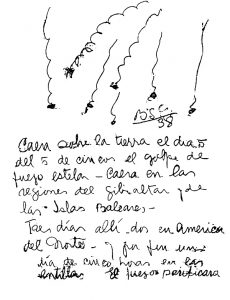 B.S.P.
38
Caera sobre la tierra el dia 5
del 5 de cinco el golpe de
fuego estelar - Caera en las
regiones del Gibraltar y de
las Islas Baleares -
Tres dias allí. dos en America
del Norte - y por fin un
dia de cinco horas en las
antillas El fuego purificara